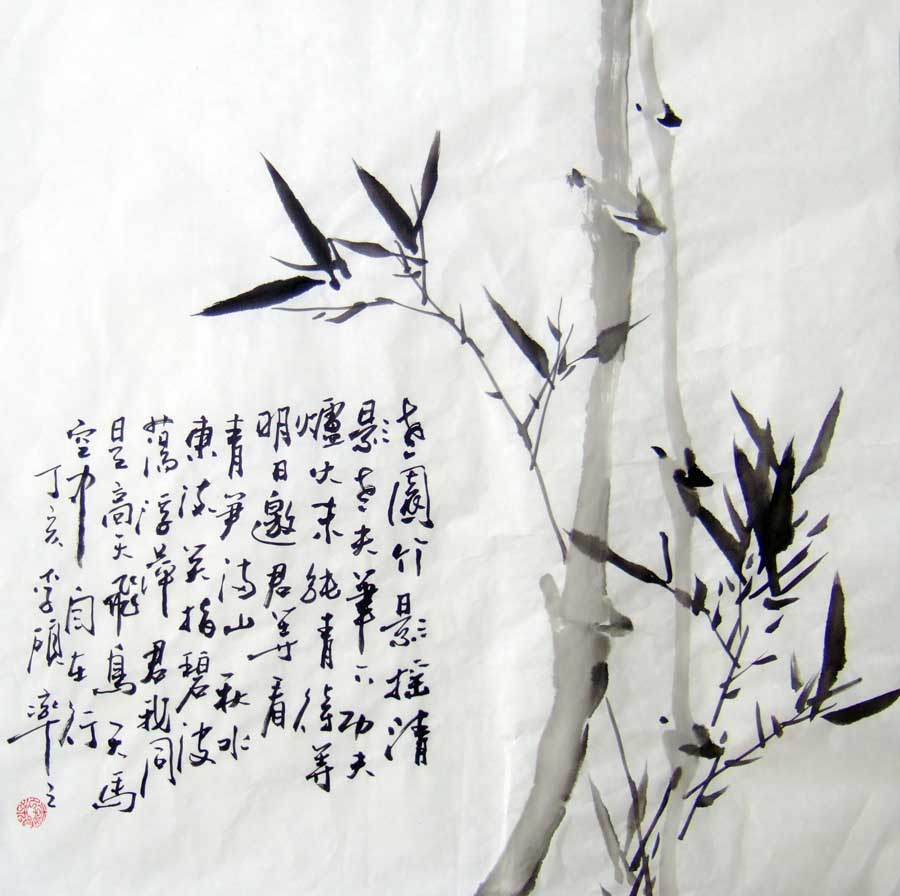 老園竹影搖清
影老夫筆下功夫
爐火未純青待等
明日邀君等看
青笋满山秋水
東波笑指碧波
蕩浮萍君我同
是高天飛鳥天馬
空中自在行
丁亥李碩率之